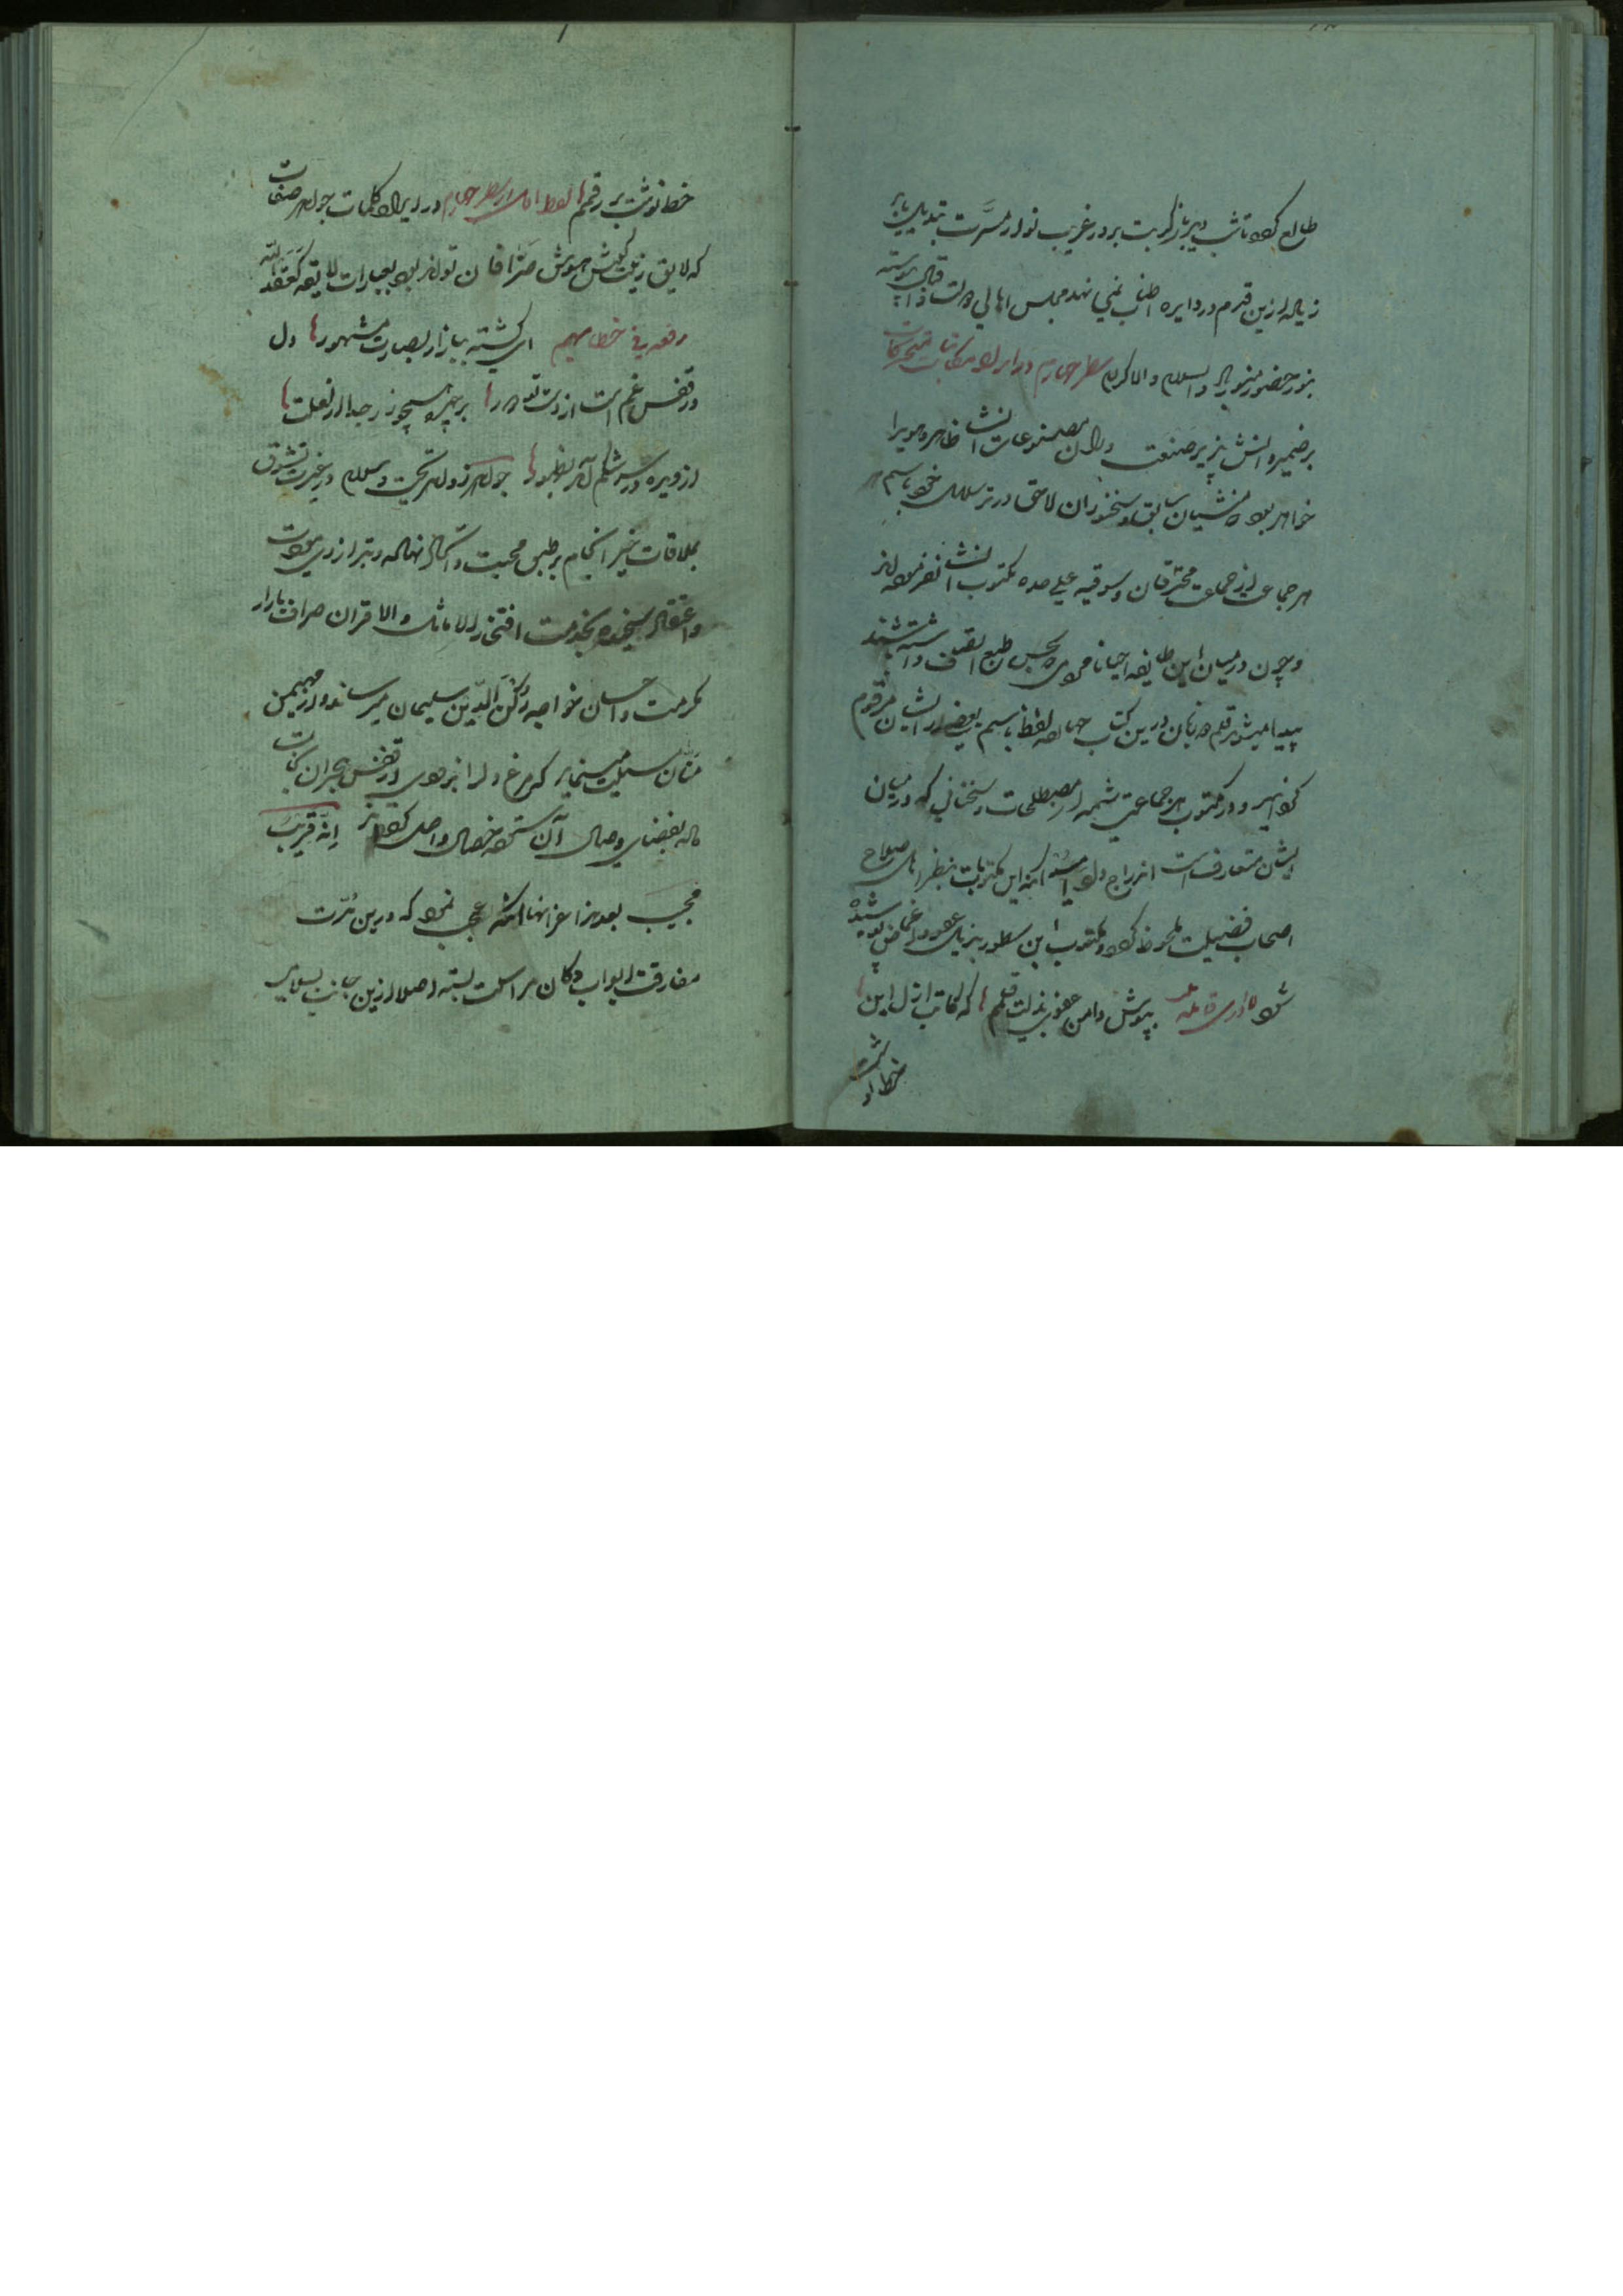 طالع کرده تا شب دیرباز کربت بروز غریب نواز مسرت تبدیل یابد
زیاده ازین قدم در دایره اطناب نمی نهد مجلس اهالی دولت و اقبال پیوسته
بنور حضور منور باد والسلام والاکرام سطر چهارم در ایراد مکاتبات محترفات
بر ضمیر دانش پذیر صنعت وران مصنوعات انشا ظاهر و هویدا
خواهد بود که منشیان سابق و سخنوران لاحق در ترسلات خود باسم
هر جماعت از جماعت محترفان و سوقیه علی حده مکتوب انشا نفرموده اند
و چون در میان این طایفه احیانا مردم بحسن طبع اتصاف داشته باشند
پیدا میشود قلم دو زبان درین کتاب چهار لفظ باسم بعضی از ایشان مرقوم
گردانید و در مکتوب هر جماعتی شمه از مصطلحات و سخنانی که در میان
ایشان متعارف است اندراج داد امید آنکه این مکتوبات بنظر اصلاح
اصحاب فضیلت ملحوظ گردد و عیوب این سطور بذیل عفو و اغماض پوشیده
شود بپوش دامن عفوی بذلت قلمم که کاتب ازل این
خطا در
خط نوشت بر رقمم لفظ اول از سطر چهارم در ایراد کلمات جواهر صفات
که لایق زینت گوش هوش صرافان تواند بود بعبارات لایقه کعقد
رقعه فی خطابهم ای گشته ببازار بصارت مشهور دل
در قفس غم است از دست تو دور بر چهره همچو زر جدا از لعلت
از دیده در سرشکم آمد بظهور جواهر زواهر تحیت و سلام در غیرت تشوق
بملاقات خیر انجام بر طبق محبت و اتکال نهاده و بترازوی مودت
و اعتقاد سنجیده بخدمت افتخار الاماثل والاقران صراف بازار
مکرمت و احسان خواجه رکن الدین سلیمان میرساند و از مهیمن
منان مسیلت مینماید که مرغ دل را از بند هوی در قفس هجران نجات
داده بفضای وصال آن ستوده خصال واصل گرداند انه قریب
مجیب بعد هذا عز انها آنکه عجب نمود که درین مدت
مفارقت ابواب دکان مراسلت بسته اصلا ازین جانب بسلامی